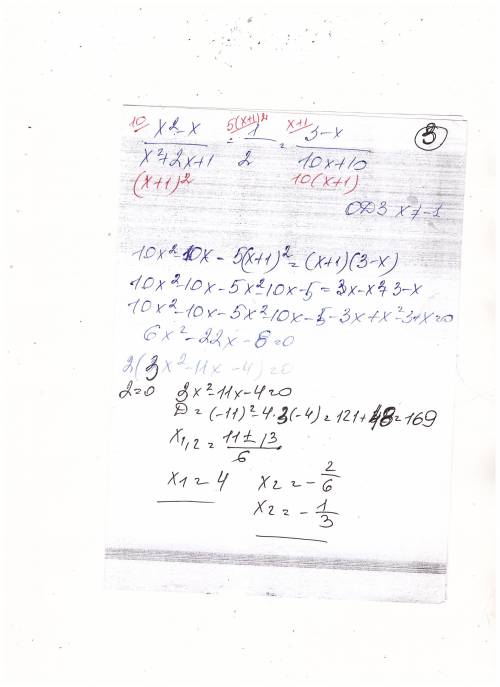 10/ x²-x / x²+2x+1 - 5(x+1)²/ 1/2 = x+1/ 3-x / 10x+10
3
(x+1)² 10(x+1)
ОДЗ x≠-1
10x²-10x-5(x+1)²=(x+1)(3-x)
10x²-10x-5x²-10x-5=3x-x²+3-x
10x²-10x-5x²-10x-5-3x+x²-3+x=0
6x²-22x-8=0
2(3x²-11x-4)=0
2=0 3x²-11x-4=0
D=(-11)²-4·3(-4)=121+48=169
x1,2=11±13/6
x1=4 x2=-2/6
x2=-1/3